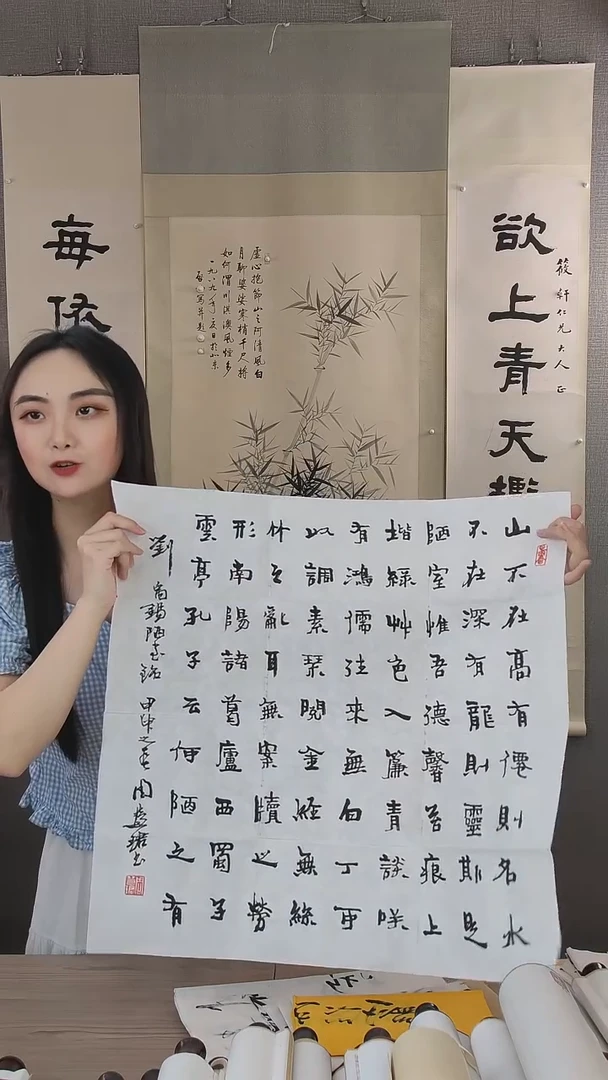 欲上青天攬
筱軒仁兄大人正
虛心抱節山之阿清風白
月聊婆娑寒梢千尺將
如何渭川淇澳風煙多
一九八九年夏日於北京
寫并題
每依
山不在高有僊則名水
不在深有龍則靈斯是
陋室惟吾德馨苔痕上
堦綠艸色入簾青談咲
有鴻儒往來無白丁可
以調素琹閱金經無絲
竹之亂耳無案牘之勞
形南陽諸葛廬西蜀子
雲亭孔子云何陋之有
劉禹錫陋室銘 甲申之春周慧珺书